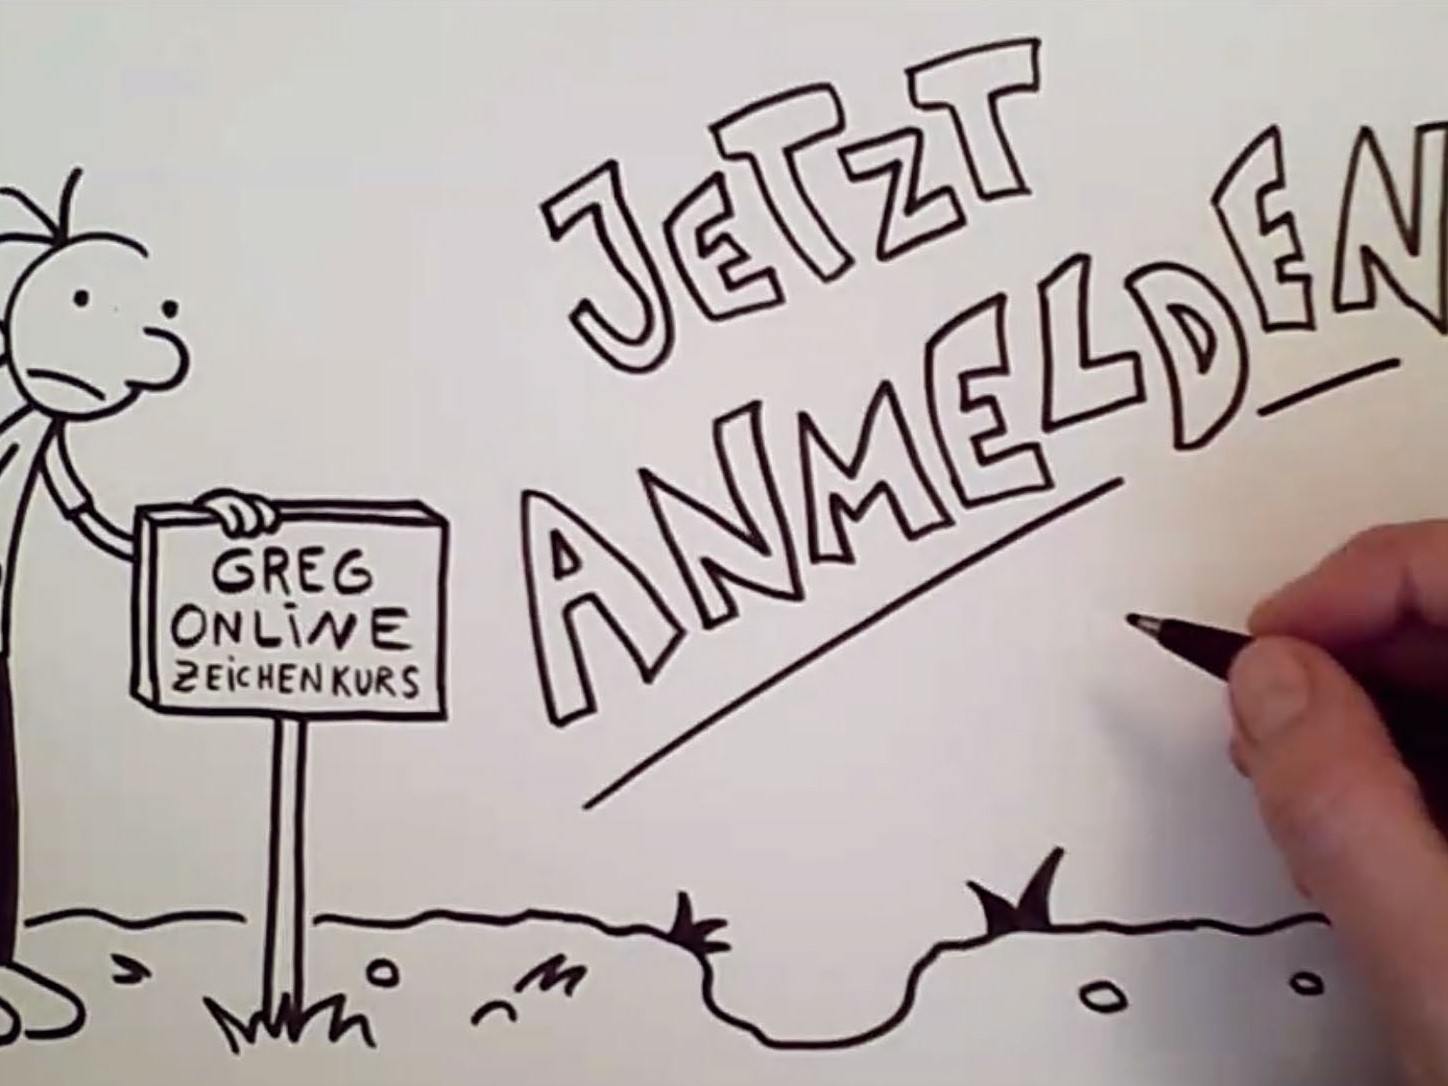 JETZT
ANMELDEN
GREG
ONLiNE
ZEiCHENKURS